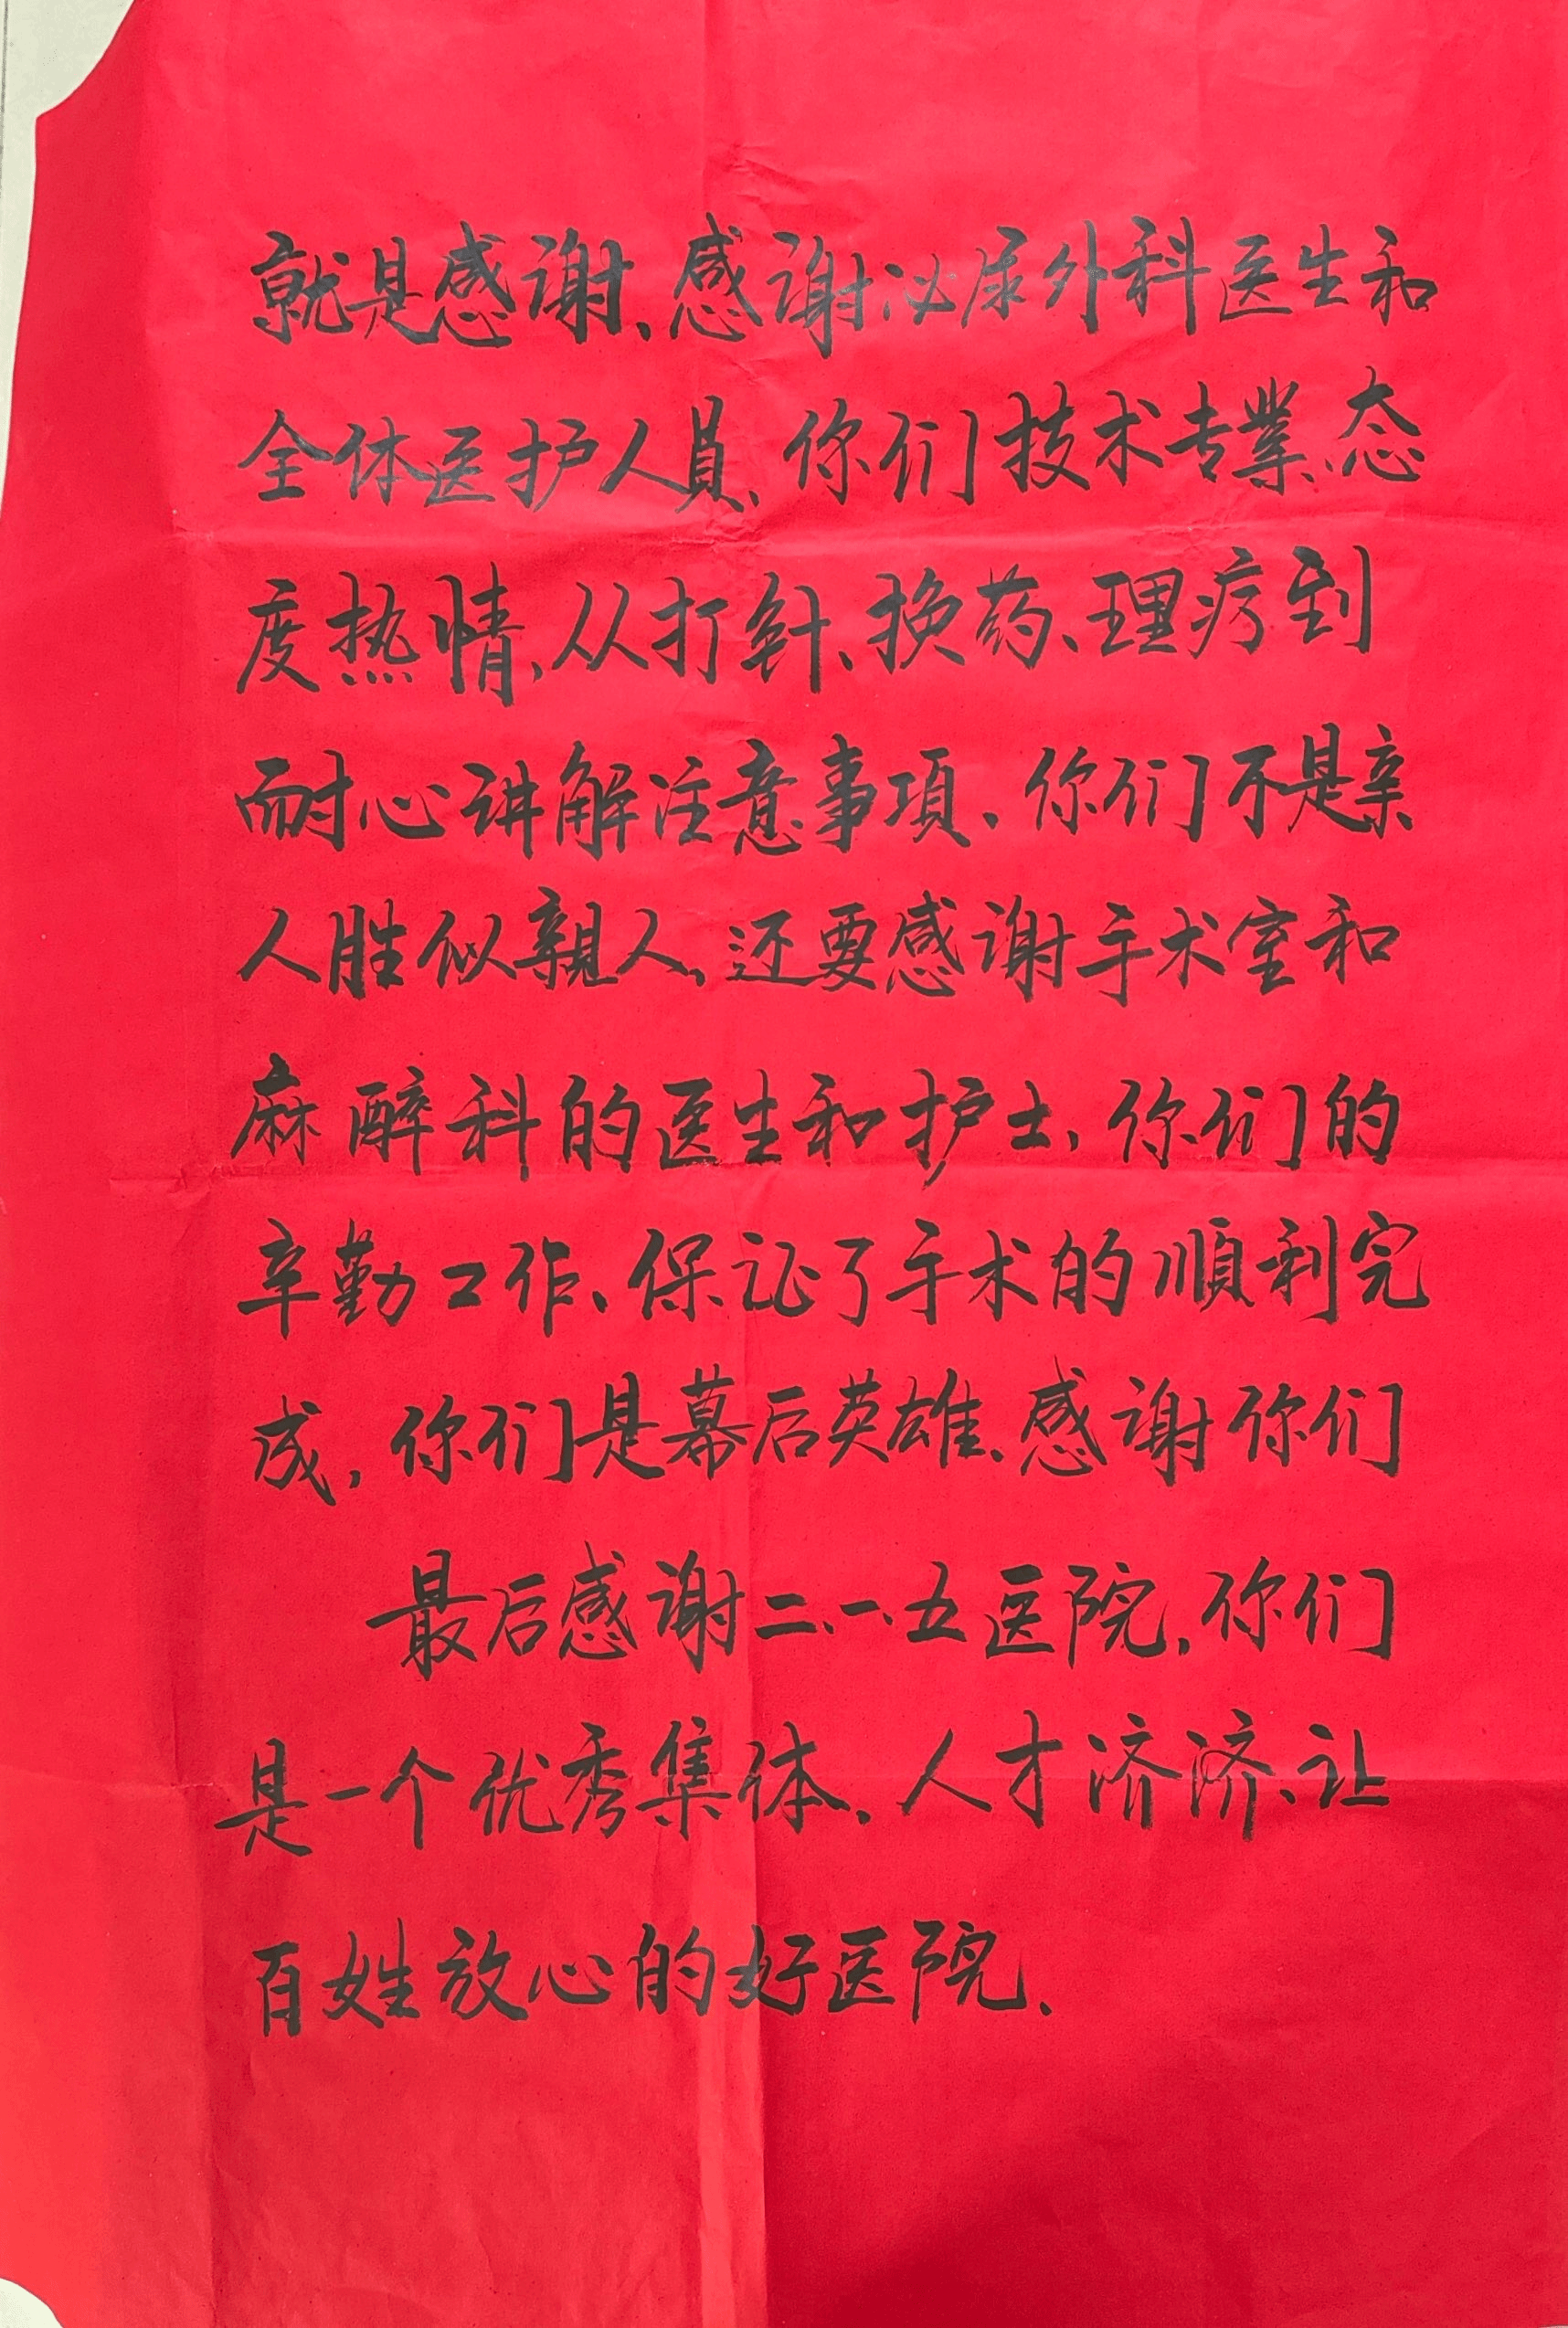 就是感谢、感谢泌尿外科医生和
全体医护人員、你们技术专業、态
度热情、从打針、换药、理疗到
耐心讲解注意事項、你们不是亲
人胜似親人、还要感谢手术室和
麻醉科的医生和护士,你们的
辛勤工作、保证了手术的順利完
成,你们是幕后英雄、感谢你们
最后感谢二、一、五医院,你们
是一个优秀集体、人才济济、让
百姓放心的好医院、